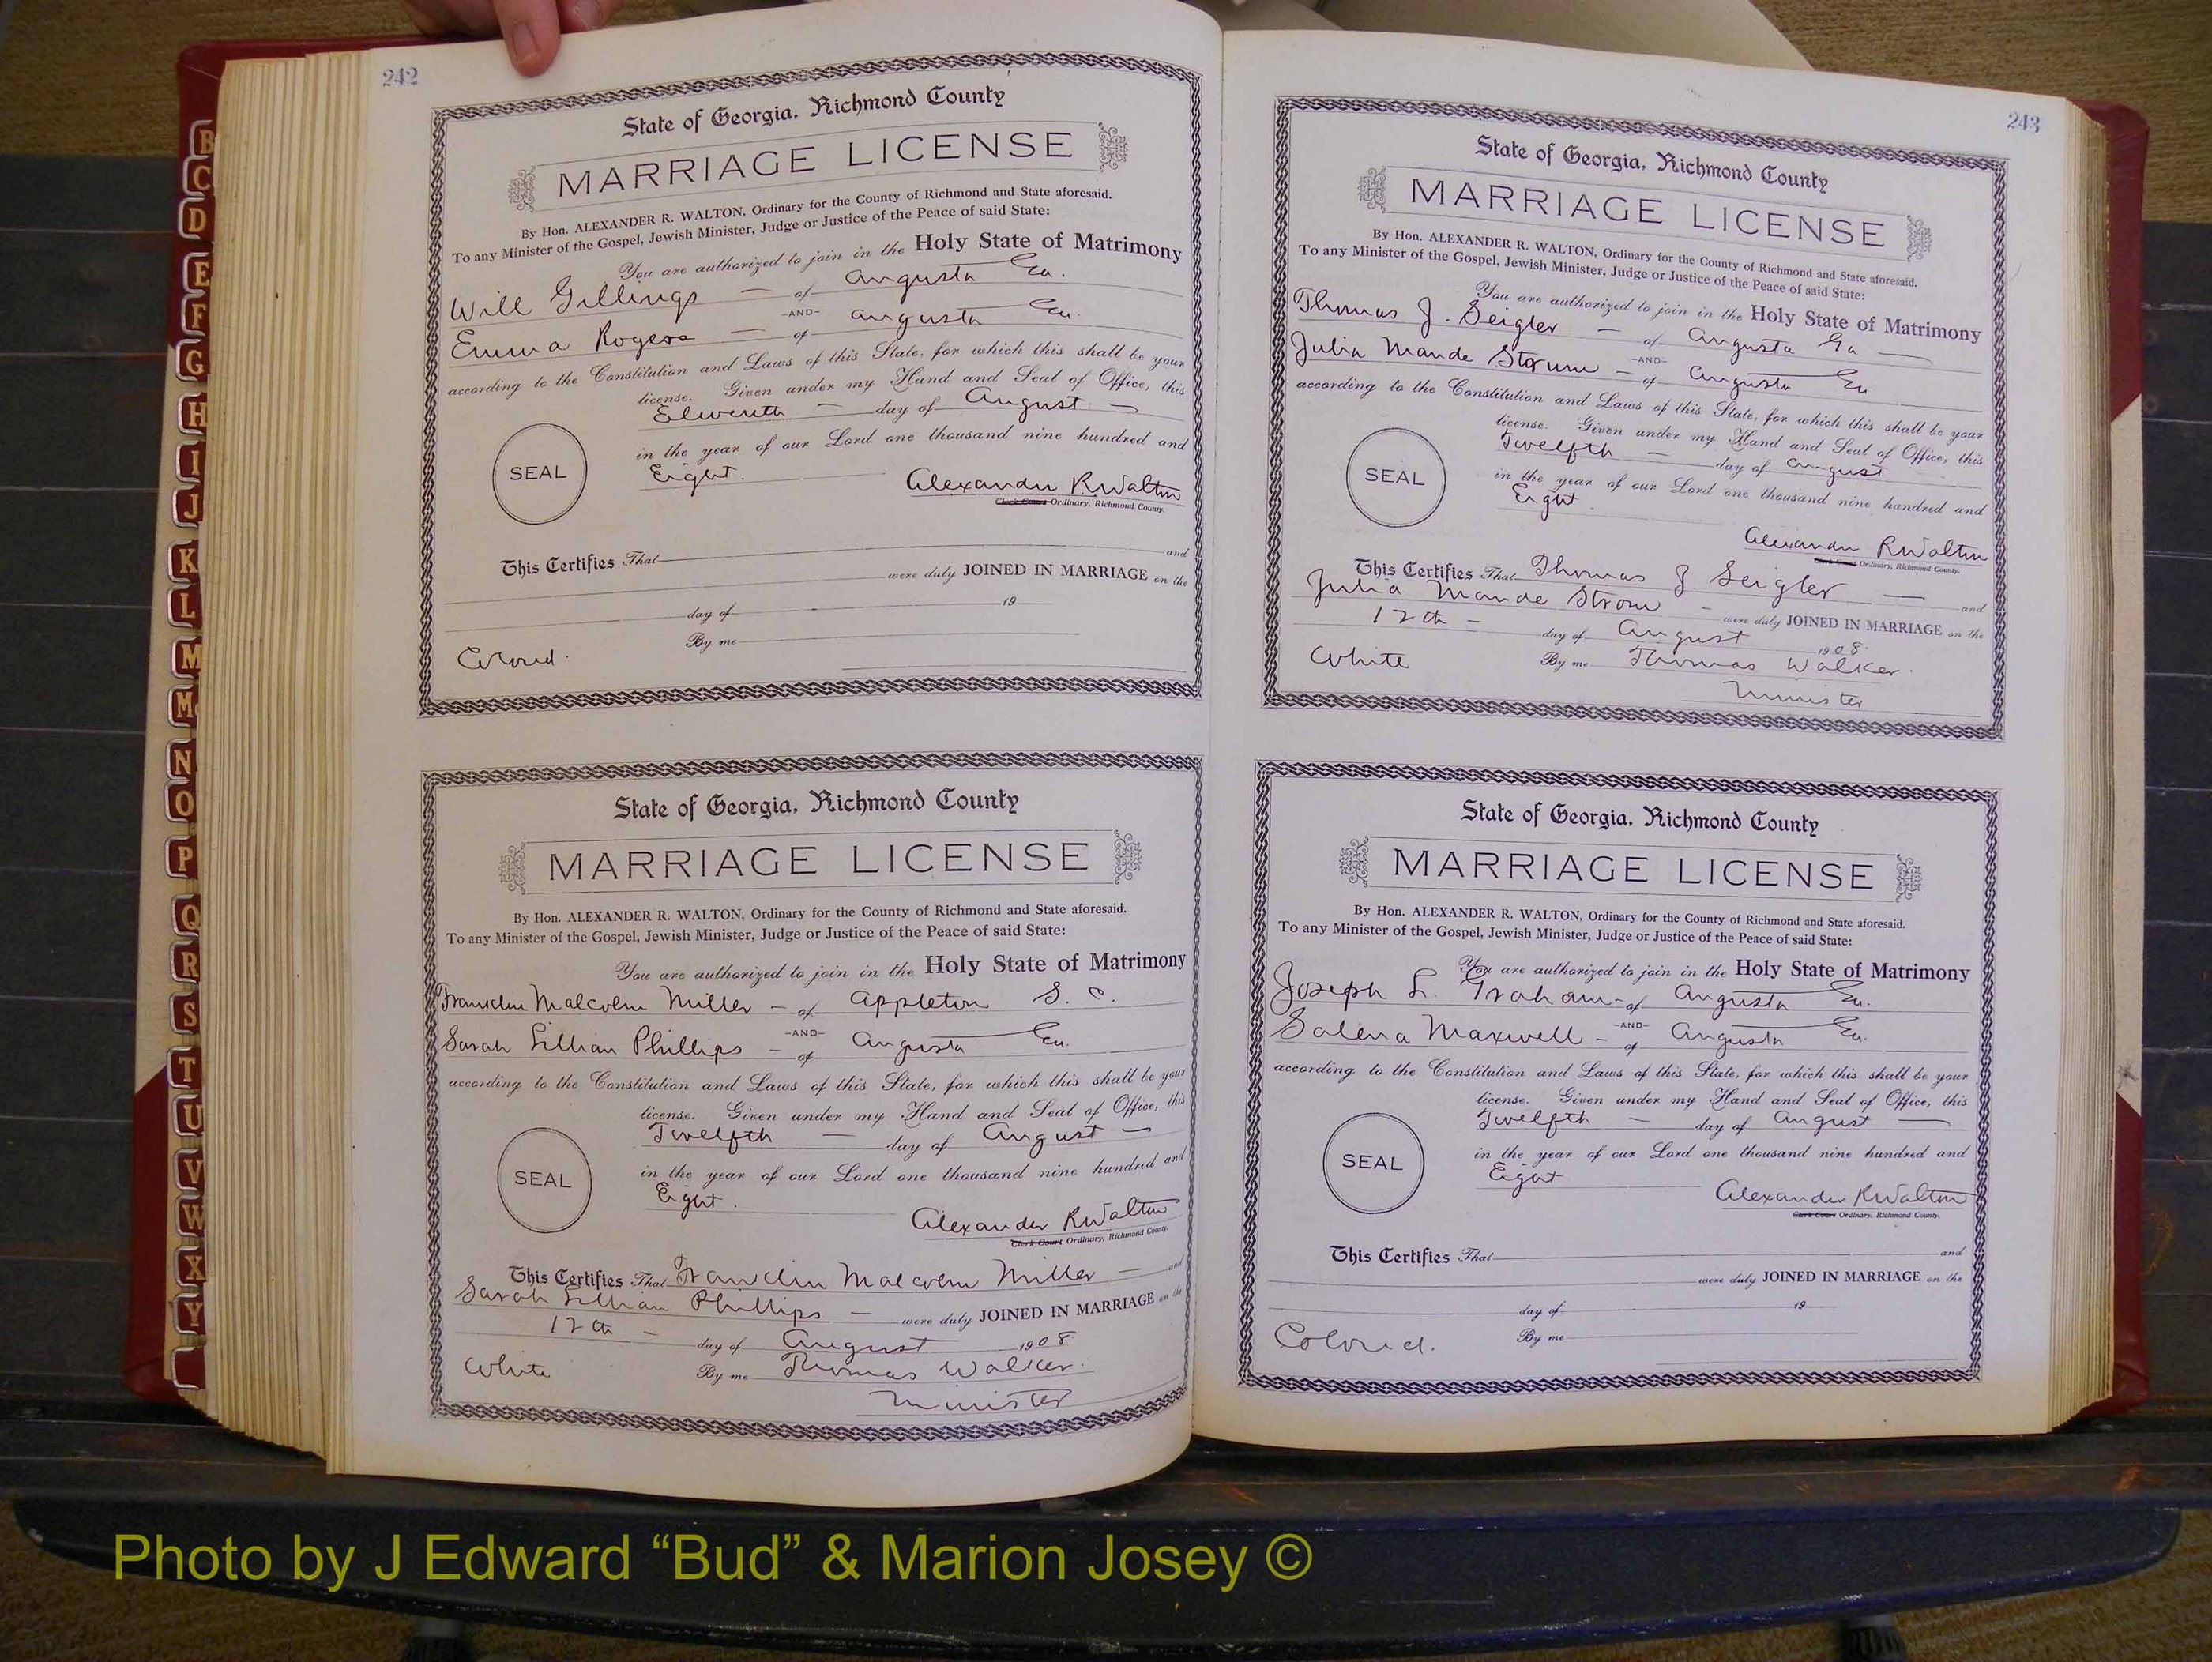 242
State of Georgia, Richmond County
MARRIAGE LICENSE
By Hon. ALEXANDER R. WALTON, Ordinary for the County of Richmond and State aforesaid.
To any Minister of the Gospel, Jewish Minister, Judge or Justice of the Peace of said State:
You are authorized to join in the Holy State of Matrimony
Will Gillings — of Augusta Ga.
-AND-
Emma Rogers — of Augusta Ga.
according to the Constitution and Laws of this State, for which this shall be your
license. Given under my Hand and Seal of Office, this
Eleventh — day of August —
in the year of our Lord one thousand nine hundred and
SEAL
Eight.
Alexander R Walton
Clerk Court Ordinary, Richmond County.
This Certifies That and
were duly JOINED IN MARRIAGE on the
day of 19
By me
Colored.
State of Georgia, Richmond County
MARRIAGE LICENSE
By Hon. ALEXANDER R. WALTON, Ordinary for the County of Richmond and State aforesaid.
To any Minister of the Gospel, Jewish Minister, Judge or Justice of the Peace of said State:
You are authorized to join in the Holy State of Matrimony
Franklin Malcolm Miller — of Appleton S. C.
-AND-
Sarah Lillian Phillips — of Augusta Ga.
according to the Constitution and Laws of this State, for which this shall be your
license. Given under my Hand and Seal of Office, this
Twelfth — day of August —
in the year of our Lord one thousand nine hundred and
SEAL
Eight.
Alexander R Walton
Clerk Court Ordinary, Richmond County.
This Certifies That Franklin Malcolm Miller — and
Sarah Lillian Phillips — were duly JOINED IN MARRIAGE on the
12th — day of August 1908
White By me Thomas Walker.
Minister
243
State of Georgia, Richmond County
MARRIAGE LICENSE
By Hon. ALEXANDER R. WALTON, Ordinary for the County of Richmond and State aforesaid.
To any Minister of the Gospel, Jewish Minister, Judge or Justice of the Peace of said State:
You are authorized to join in the Holy State of Matrimony
Thomas J. Seigler — of Augusta Ga —
-AND-
Julia Maude Strom — of Augusta Ga
according to the Constitution and Laws of this State, for which this shall be your
license. Given under my Hand and Seal of Office, this
Twelfth — day of August
in the year of our Lord one thousand nine hundred and
SEAL
Eight
Alexander R Walton
Clerk Court Ordinary, Richmond County.
This Certifies That Thomas J. Seigler — and
Julia Maude Strom — were duly JOINED IN MARRIAGE on the
12th — day of August 1908
White By me Thomas Walker.
Minister
State of Georgia, Richmond County
MARRIAGE LICENSE
By Hon. ALEXANDER R. WALTON, Ordinary for the County of Richmond and State aforesaid.
To any Minister of the Gospel, Jewish Minister, Judge or Justice of the Peace of said State:
You are authorized to join in the Holy State of Matrimony
Joseph L. Graham — of Augusta Ga.
-AND-
Salena Maxwell — of Augusta Ga.
according to the Constitution and Laws of this State, for which this shall be your
license. Given under my Hand and Seal of Office, this
Twelfth — day of August —
in the year of our Lord one thousand nine hundred and
SEAL
Eight
Alexander R Walton
Clerk Court Ordinary, Richmond County.
This Certifies That and
were duly JOINED IN MARRIAGE on the
day of 19
By me
Colored.
B
C
D
E
F
G
H
I
J
K
L
M
Mc
N
O
P
Q
R
S
T
U
V
W
X
Y
Photo by J Edward “Bud” & Marion Josey ©